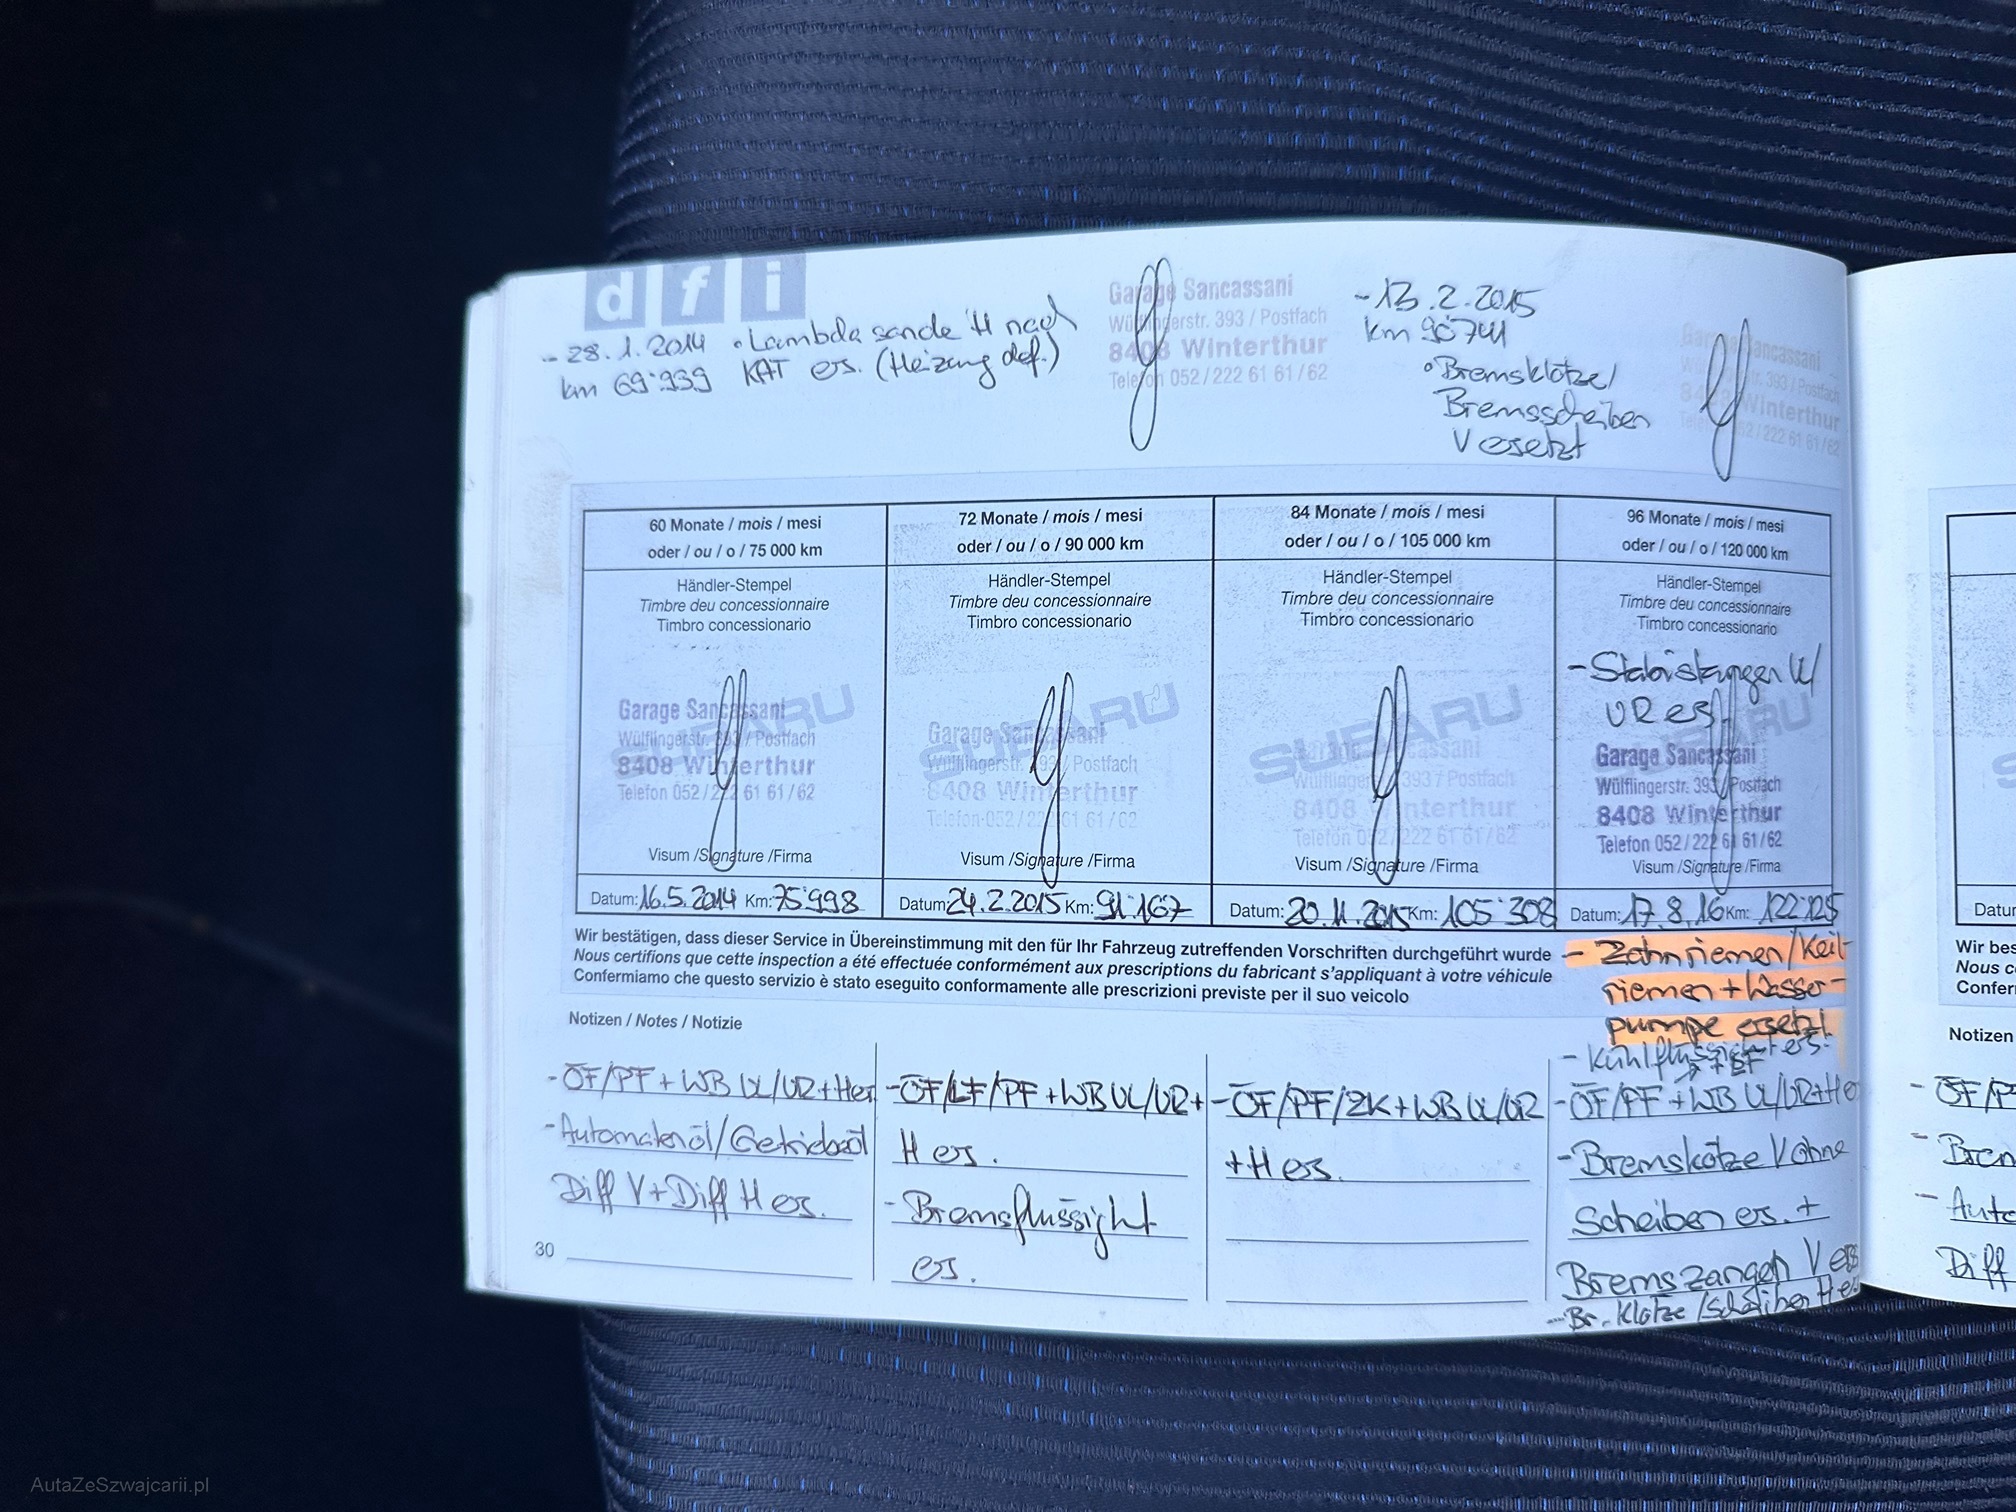 d f i
- 28.1.2014 • Lambdasonde H nach
km 69'939 KAT ers. (Heizung def.)
Garage Sancassani
Wülflingerstr. 393 / Postfach
8408 Winterthur
Telefon 052/222 61 61/62
- 13.2.2015
km 90'741
• Bremsklötze/
Bremsscheiben
V ersetzt
Garage Sancassani
393 / Postfach
Winterthur
052/222 61 61/62
60 Monate / mois / mesi
oder / ou / o / 75 000 km
Händler-Stempel
Timbre deu concessionnaire
Timbro concessionario
SUBARU
Garage Sancassani
Wülflingerstr. 393 / Postfach
8408 Winterthur
Telefon 052/222 61 61/62
Visum /Signature /Firma
Datum: 16.5.2014 Km: 75'998
72 Monate / mois / mesi
oder / ou / o / 90 000 km
Händler-Stempel
Timbre deu concessionnaire
Timbro concessionario
SUBARU
Garage Sancassani
Wülflingerstr. 393 / Postfach
8408 Winterthur
Telefon 052/222 61 61/62
Visum /Signature /Firma
Datum: 24.2.2015 Km: 91'167
84 Monate / mois / mesi
oder / ou / o / 105 000 km
Händler-Stempel
Timbre deu concessionnaire
Timbro concessionario
SUBARU
Garage Sancassani
Wülflingerstr. 393 / Postfach
8408 Winterthur
Telefon 052/222 61 61/62
Visum /Signature /Firma
Datum: 20.11.2015 Km: 105'308
96 Monate / mois / mesi
oder / ou / o / 120 000 km
Händler-Stempel
Timbre deu concessionnaire
Timbro concessionario
- Stabistangen VL/
VR ers.
SUBARU
Garage Sancassani
Wülflingerstr. 393 / Postfach
8408 Winterthur
Telefon 052/222 61 61/62
Visum /Signature /Firma
Datum: 17.8.16 Km: 122'125
Wir bestätigen, dass dieser Service in Übereinstimmung mit den für Ihr Fahrzeug zutreffenden Vorschriften durchgeführt wurde
Nous certifions que cette inspection a été effectuée conformément aux prescriptions du fabricant s'appliquant à votre véhicule
Confermiamo che questo servizio è stato eseguito conformamente alle prescrizioni previste per il suo veicolo
- Zahnriemen/Keil-
riemen + Wasser-
pumpe ersetzt.
- Kühlflüssigkeit ers.
Notizen / Notes / Notizie
- ÖF/PF + WB VL/VR + H er.
- Automatenöl/Getriebeöl
Diff V + Diff H ers.
- ÖF/LF/PF + WB VL/VR +
H ers.
- Bremsflüssight
ers.
- ÖF/PF/ZK + WB VL/VR
+ H ers.
- ÖF/PF + WB VL/VR + H e
- Bremskötze V ohne
Scheiben ers. +
Bremszangen V ers
- Br. Klötze/Scheiben H e
30
Datu
Wir bes
Nous c
Confer
Notizen
- ÖF/P
- Brem
- Auto
Diff
AutaZeSzwajcarii.pl